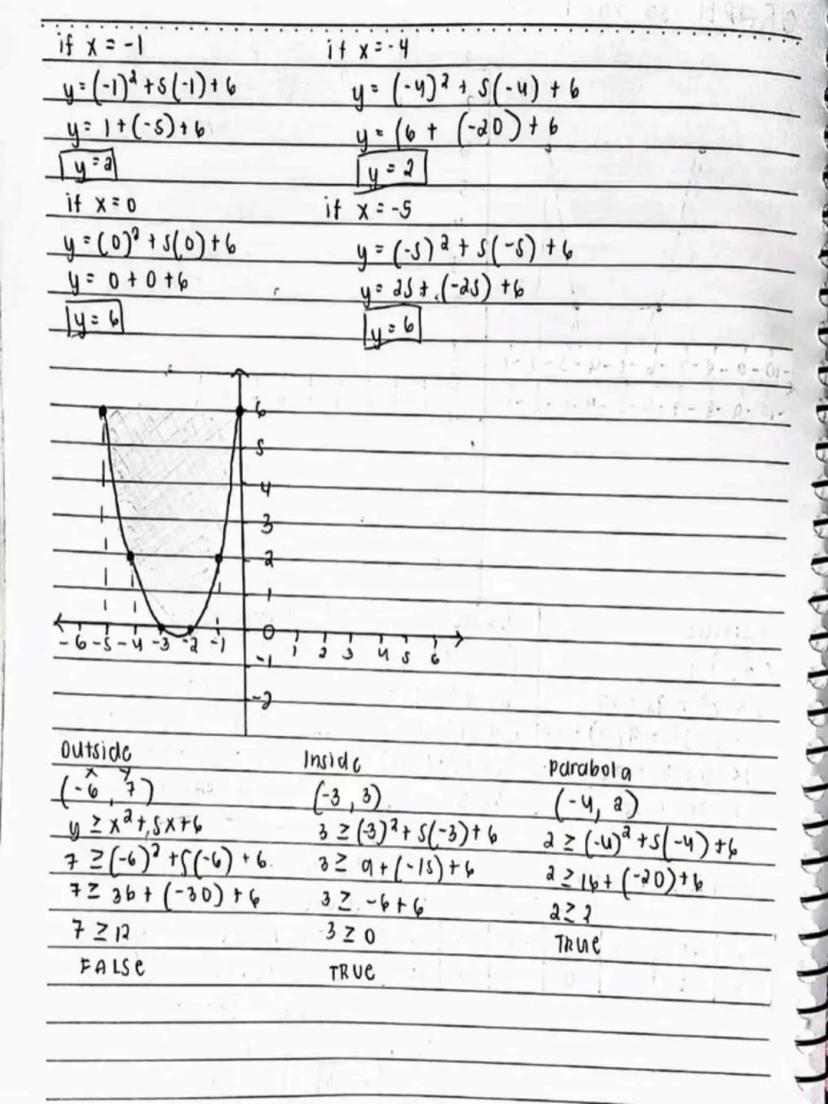 if x = -1
y = (-1)² + 5(-1) + 6
y = 1 + (-5) + 6
y = 2
if x = 0
y = (0)² + 5(0) + 6
y = 0 + 0 + 6
y = 6
if x = -4
y = (-4)² + 5(-4) + 6
y = 16 + (-20) + 6
y = 2
if x = -5
y = (-5)² + 5(-5) + 6
y = 25 + (-25) + 6
y = 6
6
5
4
3
2
1
-6 -5 -4 -3 -2 -1 0 1 2 3 4 5 6
-1
-2
Outside
x y
(-6, 7)
y ≥ x² + 5x + 6
7 ≥ (-6)² + 5(-6) + 6
7 ≥ 36 + (-30) + 6
7 ≥ 12
FALSE
Inside
(-3, 3)
3 ≥ (-3)² + 5(-3) + 6
3 ≥ 9 + (-15) + 6
3 ≥ -6 + 6
3 ≥ 0
TRUE
parabola
(-4, 2)
2 ≥ (-4)² + 5(-4) + 6
2 ≥ 16 + (-20) + 6
2 ≥ 2
TRUE